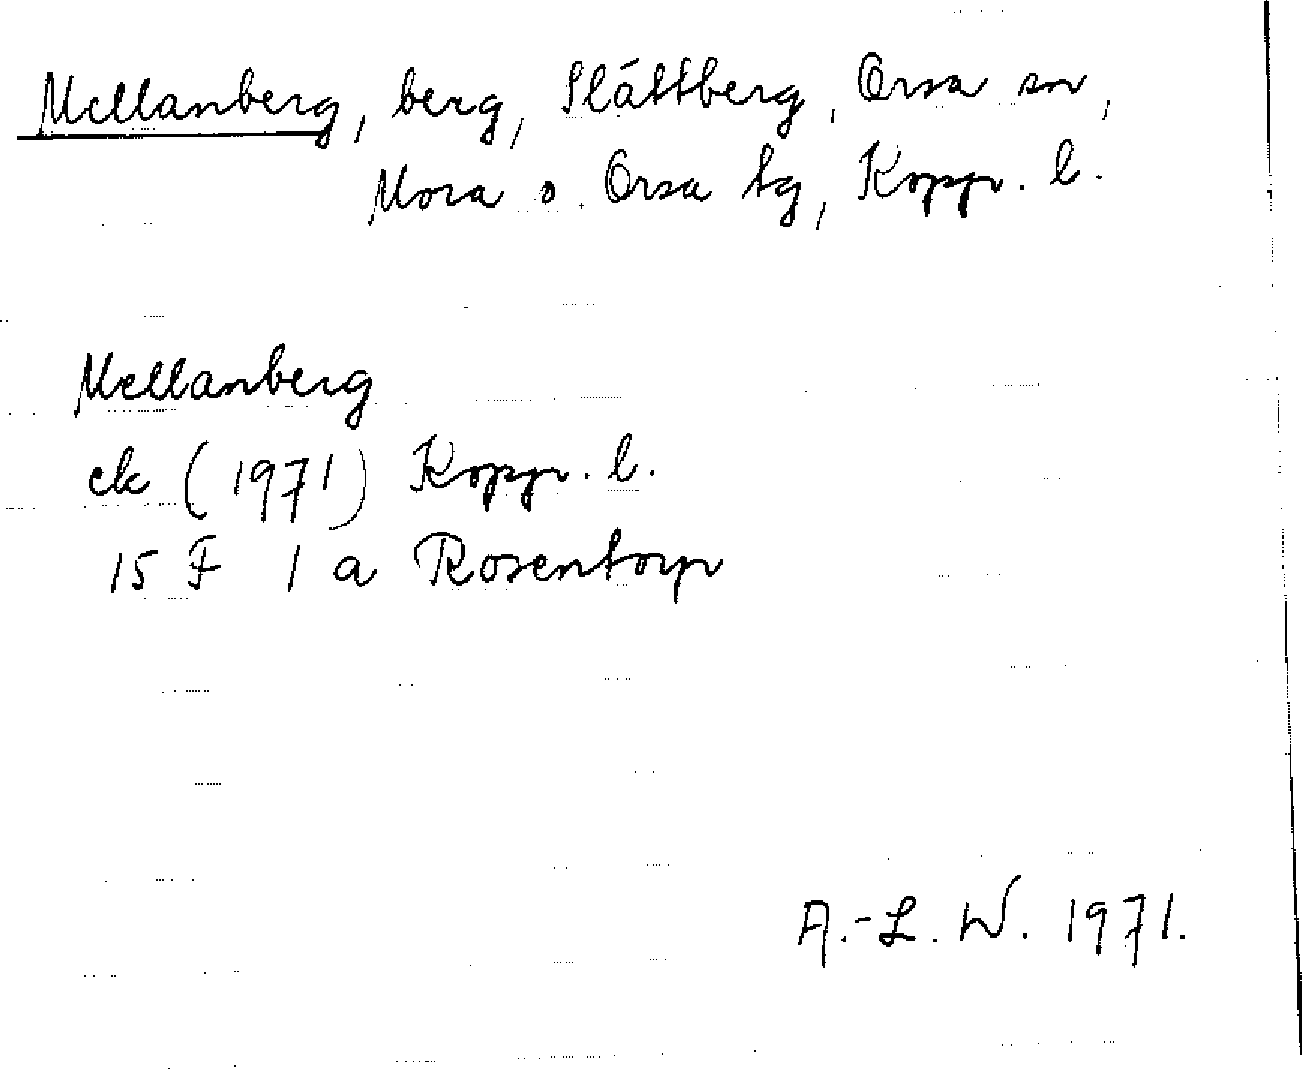 Mellanberg, berg, Slättberg, Orsa sn,
Mora o. Orsa tg, Kopp. l.
Mellanberg
ek (1971) Kopp. l.
15 F 1 a Rosentorp
A.-L. W. 1971.